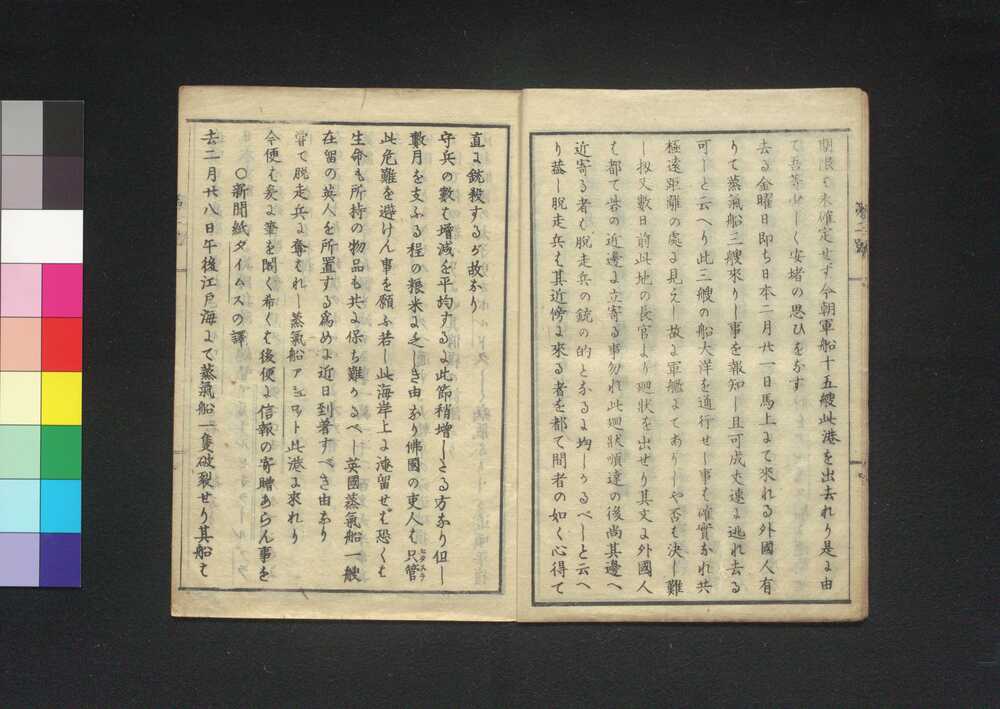 期限も未確定せず今朝軍船十五艘此港を出去れり是に由
て吾等少しく安堵の思ひをなす
去る金曜日即ち日本二月廿一日馬上にて來れる外國人有
りて蒸氣船三艘來りし事を報知し且可成丈速に逃れ去る
可しと云へり此三艘の船大洋を通行せし事も確實なれ共
極遠距離の處に見えし故に軍艦にてありしや否も決し難
し扨又數日前此地の長官より廻狀を出せり其文に外國人
も都て砦の近邊に立寄る事勿れ此廻狀順達の後尚其邊へ
近寄る者も脱走兵の銃の的となるに均しかるべしと云へ
り蓋し脱走兵も其近傍に來る者を都て間者の如く心得て
直に銃殺するが故なり
守兵の數も增減を平均するに此節稍增しさる方なり但し
數月を支ふる程の粮米に乏しき由なり佛國の吏人も只管
ヒタスラ
此危難を避けん事を願ふ若し此海岸上に滯留せば恐くも
生命も所持の物品も共に保ち難かるべし英國蒸氣船一艘
在留の英人を所置する爲めに近日到著すべき由なり
嘗て脱走兵に奪もれし蒸氣船アシュロット此港に來れり
今便も爰に筆を閣く希くも後便に信報の寄贈あらん事を
○新聞紙タイムスの譯
去二月廿八日午後江戸海にて蒸氣船一隻破裂せり其船も